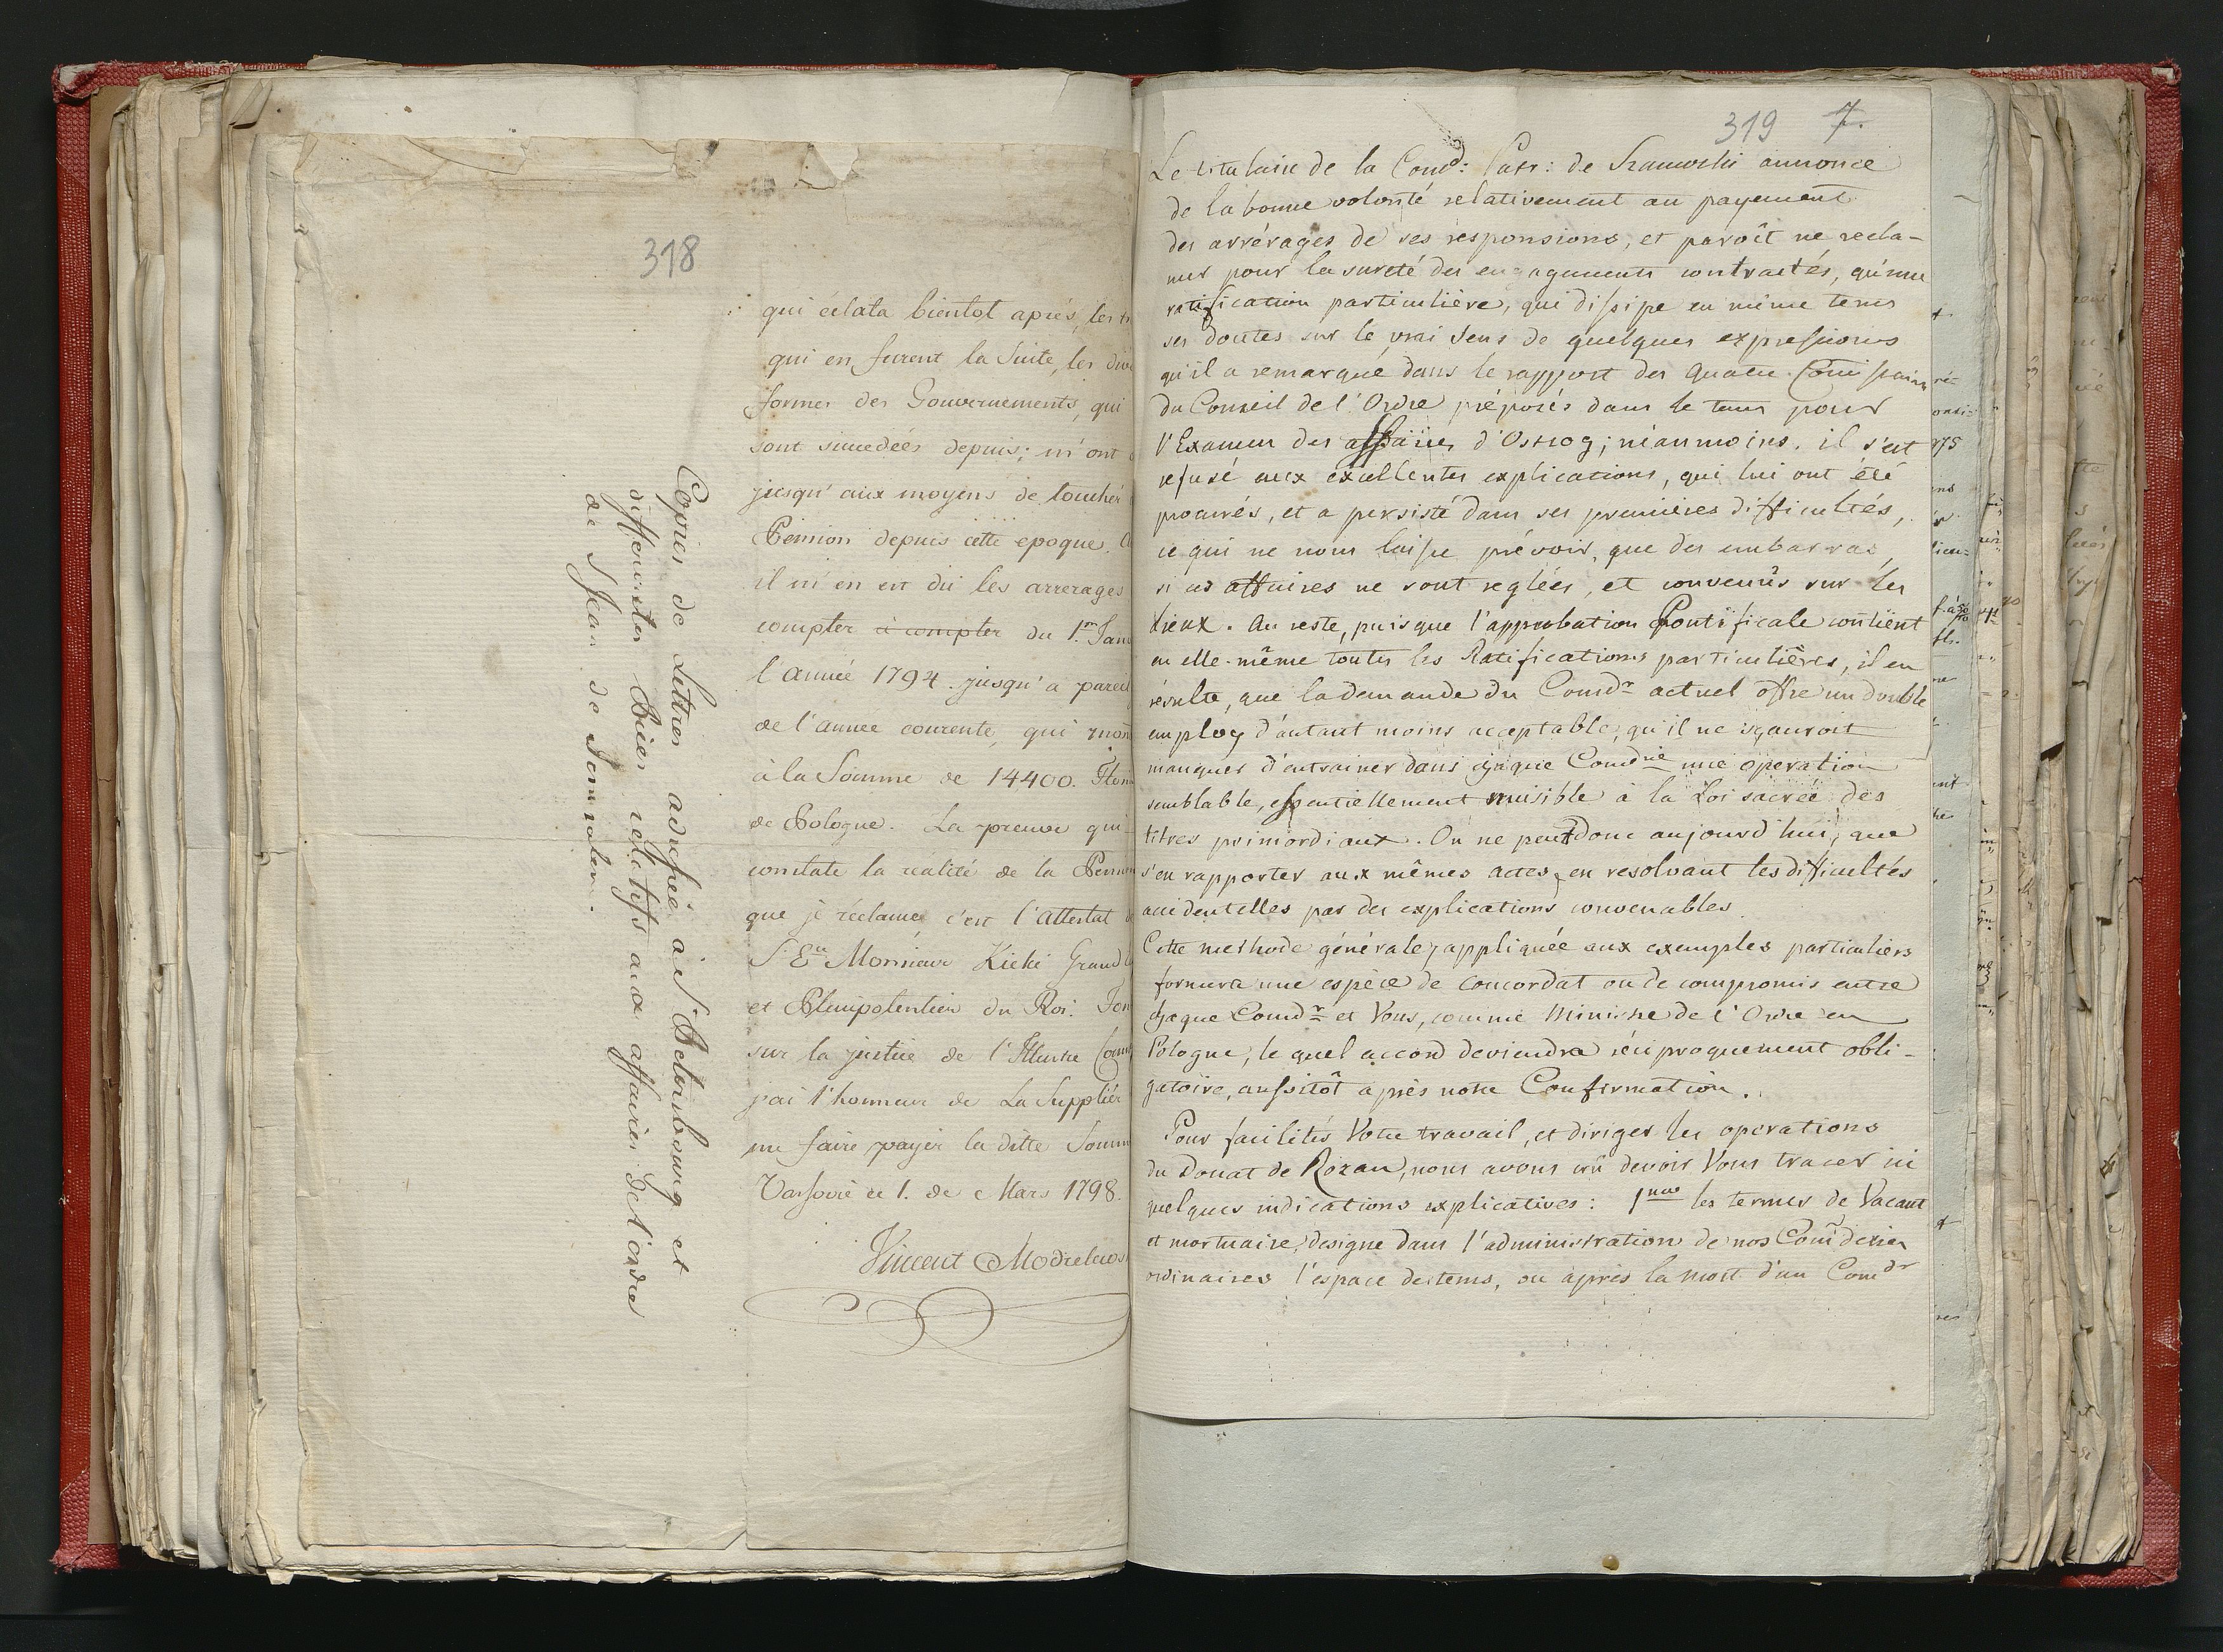 318
qui éclata bientot aprés, les
qui en furent la Suite, les
formes des Gouvernements, qui
sont succedées depuis; m'ont
jusqu' aux moyens de touchér
Pension depuis cette epoque.
il m'en est dû les arrerages
compter à compter du 1.er Jan
l'Année 1794. jusqu'a pareil
de l'année courente, qui mon
à la Somme de 14400. Flor
de Pologne. La preuve qui
constate la réalité de la Pension
que je réclame, c'est l'Attestat
S. E. Monsieur Kicki Grand
et Plenipotentier du Roi.
sur la justice de l'Illustre Com
j'ai l'honneur de La Supplier
me faire payer la ditte Somme
Varsovie ce 1. de Mars 1798.
Vincent Modzelews
Copies de Lettres adressée à S. Petersbourg et
differentes Pieces relatifs aux affaires de l'ordre
de S. Jean de Jerusalem.
319 7.
Le titulaire de la Comd: Patr: de annonce
de la bonne volonté relativement au payement
des arrérages de ses responsions, et paroît ne recla-
mer pour la sureté des engagements contractés, qu'une
ratification particulière, qui dissipe en même tems
ses doutes sur le vrai sens de quelques expressions
qu'il a remarqué dans le rapport des quatre Comissaires
du Conseil de l'Ordre préposés dans le tems pour
l'Examen des affaires d'Ostrog; néanmoins, il s'est
refusé aux excellentes explications, qui lui ont été
procurés, et a persisté dans ses premières difficultés,
ce qui ne nous laisse prévoir, que des embarras,
si ces affaires ne sont reglées, et convenûs sur les
Lieux. Au reste, puisque l'approbation Pontificale contient
en elle-même toutes les Ratifications particulières, il en
résulte, que la demande du Comdr actuel offre un double
employ d'autant moins acceptable, qu'il ne sçauroit
manquer d'entrainer dans chaque Comdrie une operation
semblable, essentiellement nuisible à la Loi sacrée des
titres primordiaux. On ne peut donc aujourd'hui, que
s'en rapporter aux mêmes actes, en resolvant les difficultés
accidentelles par des explications convenables
Cette methode générale, appliquée aux exemples particuliers
formera une espèce de concordat ou de compromis entre
chaque Comdr et Vous, comme Ministre de l'Ordre en
Pologne, le quel accord deviendra réciproquement obli-
gatoire, aussitôt après notre Confirmation.
Pour facilités Votre travail, et diriger les operations
du Donat de Rozan, nous avons crû devoir Vous tracer ici
quelques indications explicatives: 1mo les termes de Vacant
et mortuaire, designe dans l'administration de nos Comderies
ordinaires l'espace de tems, ou après la mort d'un Comdr